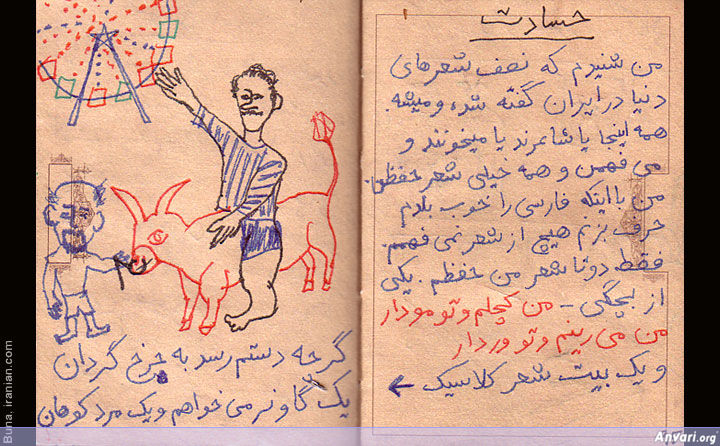 حسادت
من شنیدم که نصف شعرهای
دنیا در ایران گفته شده و میشه.
همه اینجا یا شاعرند یا میخونند و
می فهمن و همه خیلی شعر حفظن.
من با اینکه فارسی را خوب بلدم
حرف بزنم هیچ از شعر نمی فهمم.
فقط دوتا شعر من حفظم. یکی
از بچگی - من کچلم و تو مودار
من می رینم و تو وردار
و یک بیت شعر کلاسیک ←
گرچه دستم رسد به چرخ گردان
یک گاو نر می خواهم و یک مرد کوهان
Buna. iranian.com
Anvari.org